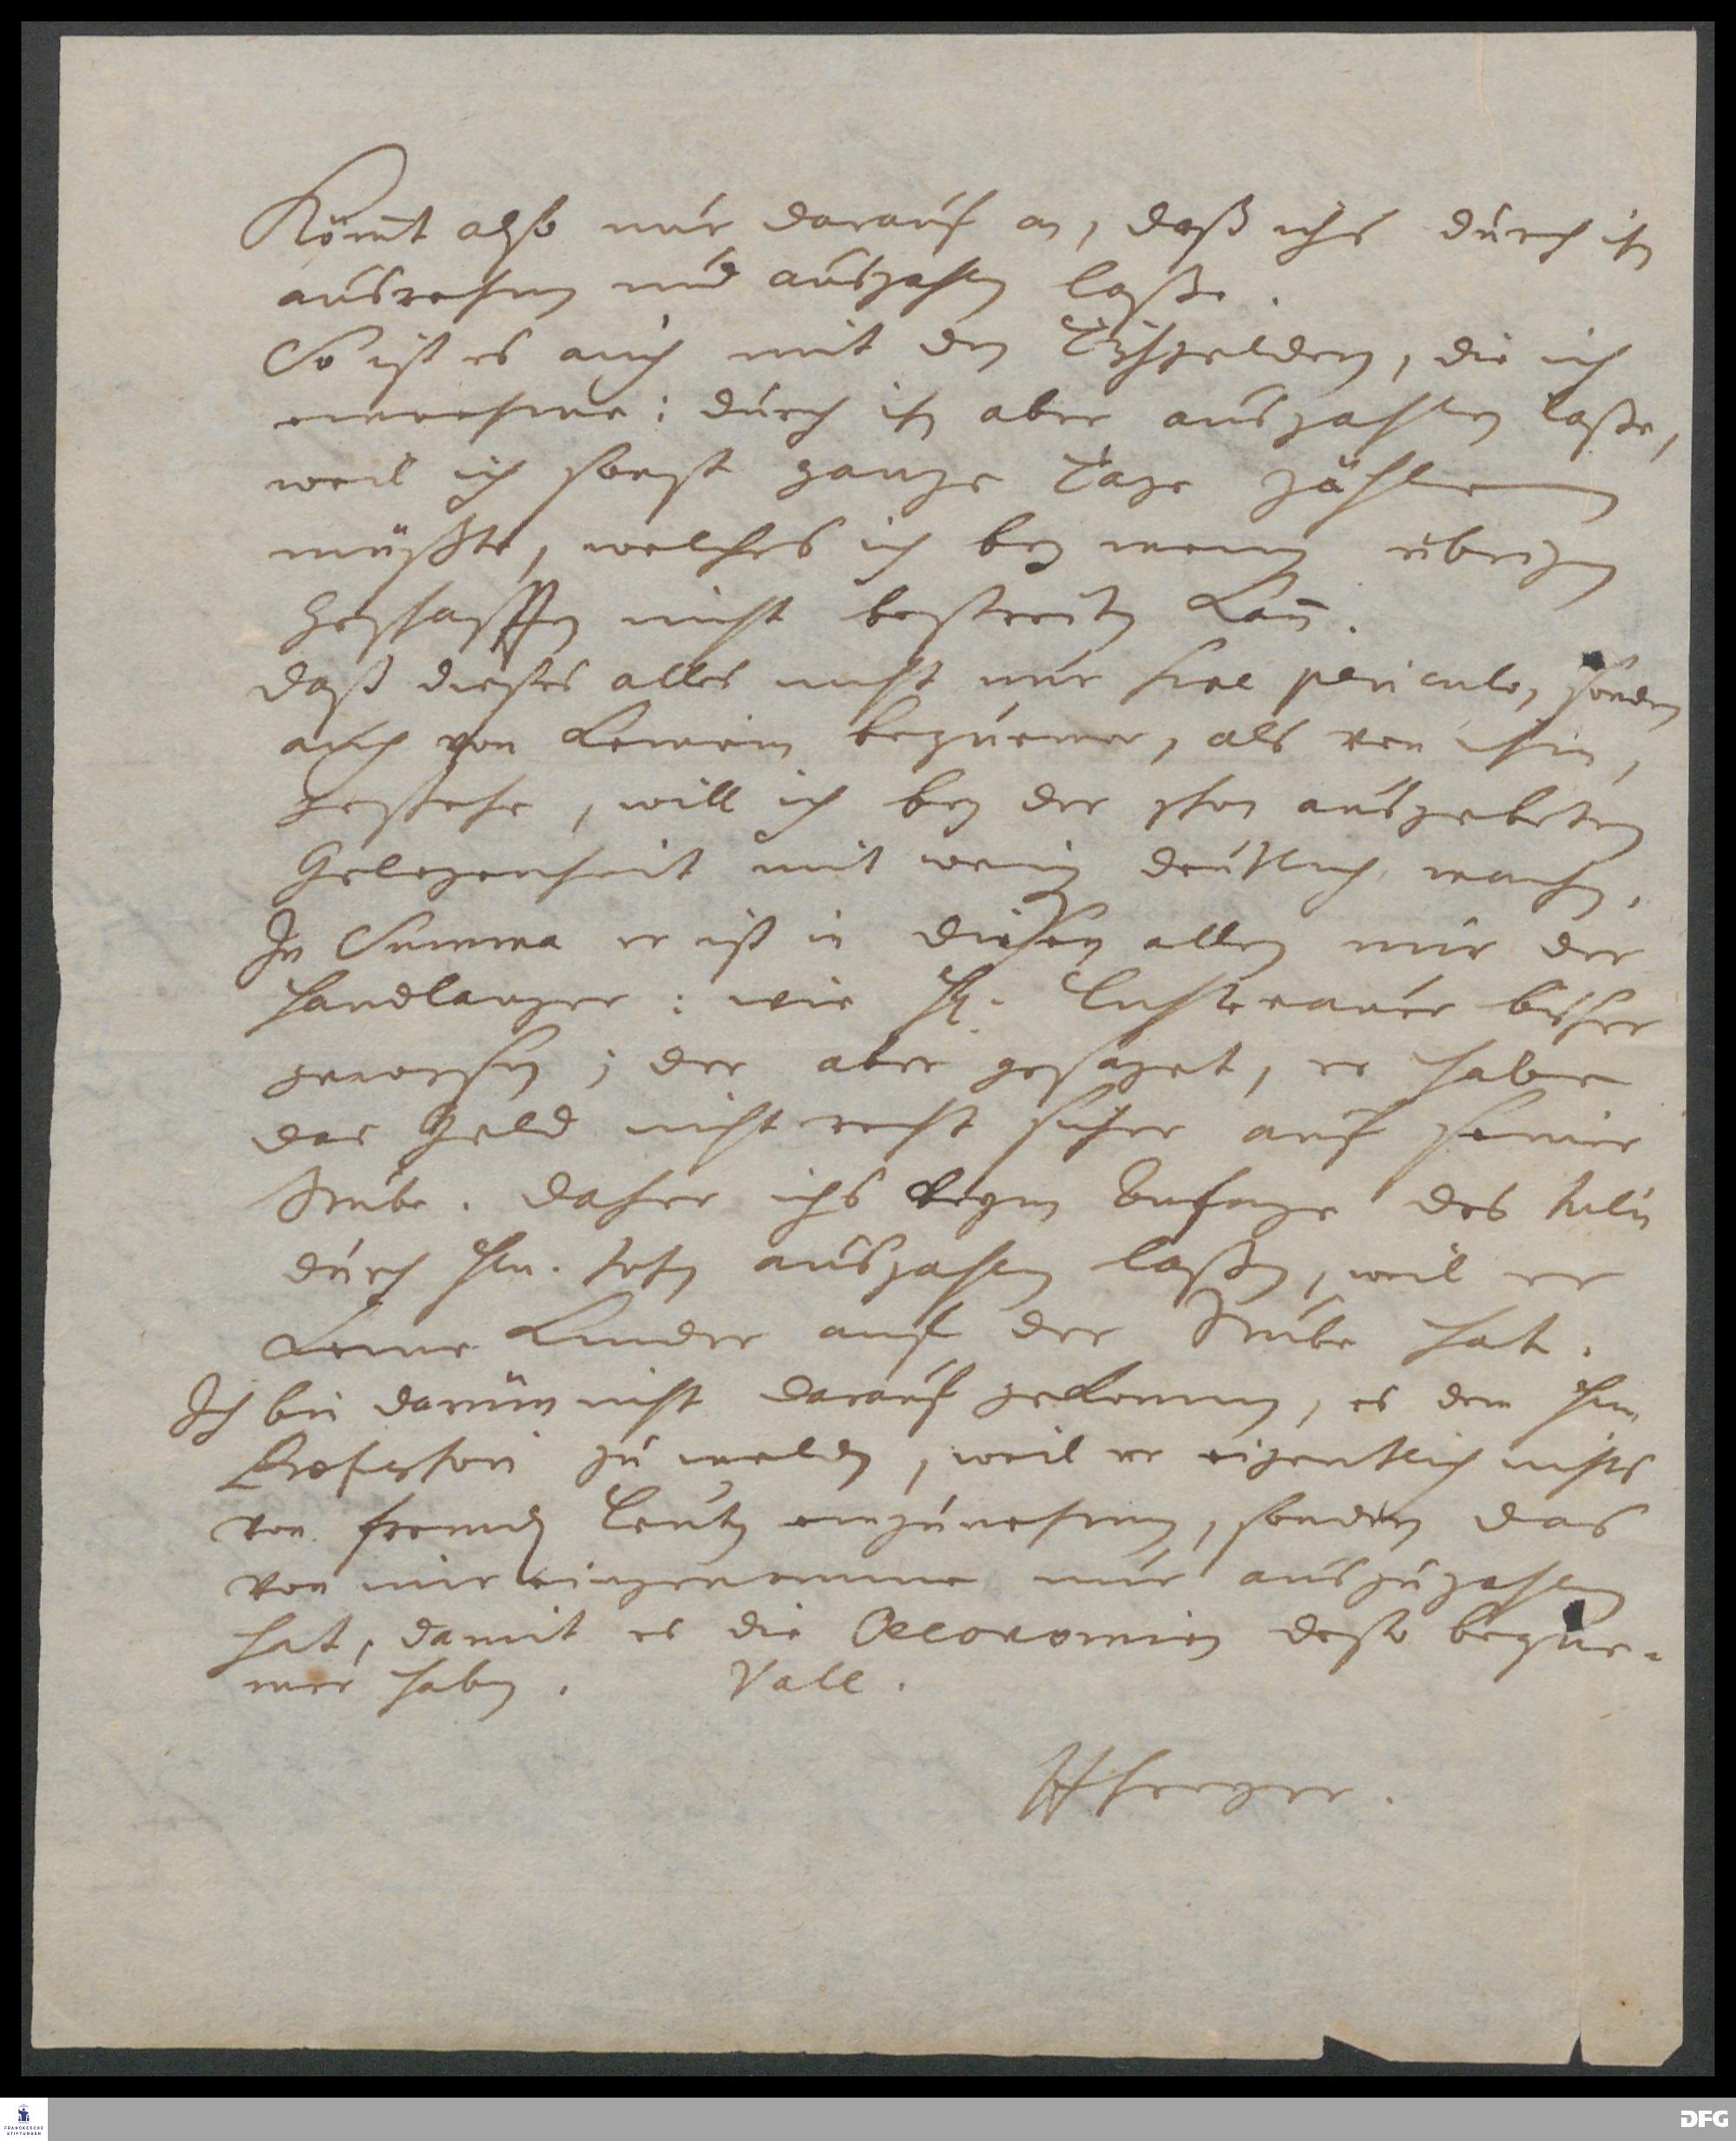 Kömt also nur darauf an, daß ichs durch ihn
ausnehmen und auszahlen laße.
So ist es auch mit den Tischgeldern, die ich
einnehme: durch ihn aber auszahlen laße,
weil ich sonst gantze Tage zählen
müßte, welches ich bey meinen übrigen
Geschäfften nicht bestreiten kan.
Daß dieses alles nicht nur sine periculo, sondern
auch von keinem bequemer, als von ihm,
geschehe, will ich bey der schon ausgebetenen
Gelegenheit mit wenig deutlich machen.
In Summa er ist in diesen allen nur der
Handlanger: wie H. bisher
gewesen; der aber gesaget, er habe
das Geld nicht recht sicher auf seiner
Stube. Daher ichs beym Anfange des
durch Hn. auszahlen laßen, weil er
keine Kinder auf der Stube hat.
Ich bin darum nicht darauf gekommen, es dem Hn.
Professori zu melden, weil er eigentlich nichts
von fremden Leuten einzunehmen, sondern das
von mir eingenommene nur auszuzahlen
hat, damit es die Oeconomien desto beque-
mer haben. Vale.
FRANCKESCHE
STIFTUNGEN
DFG